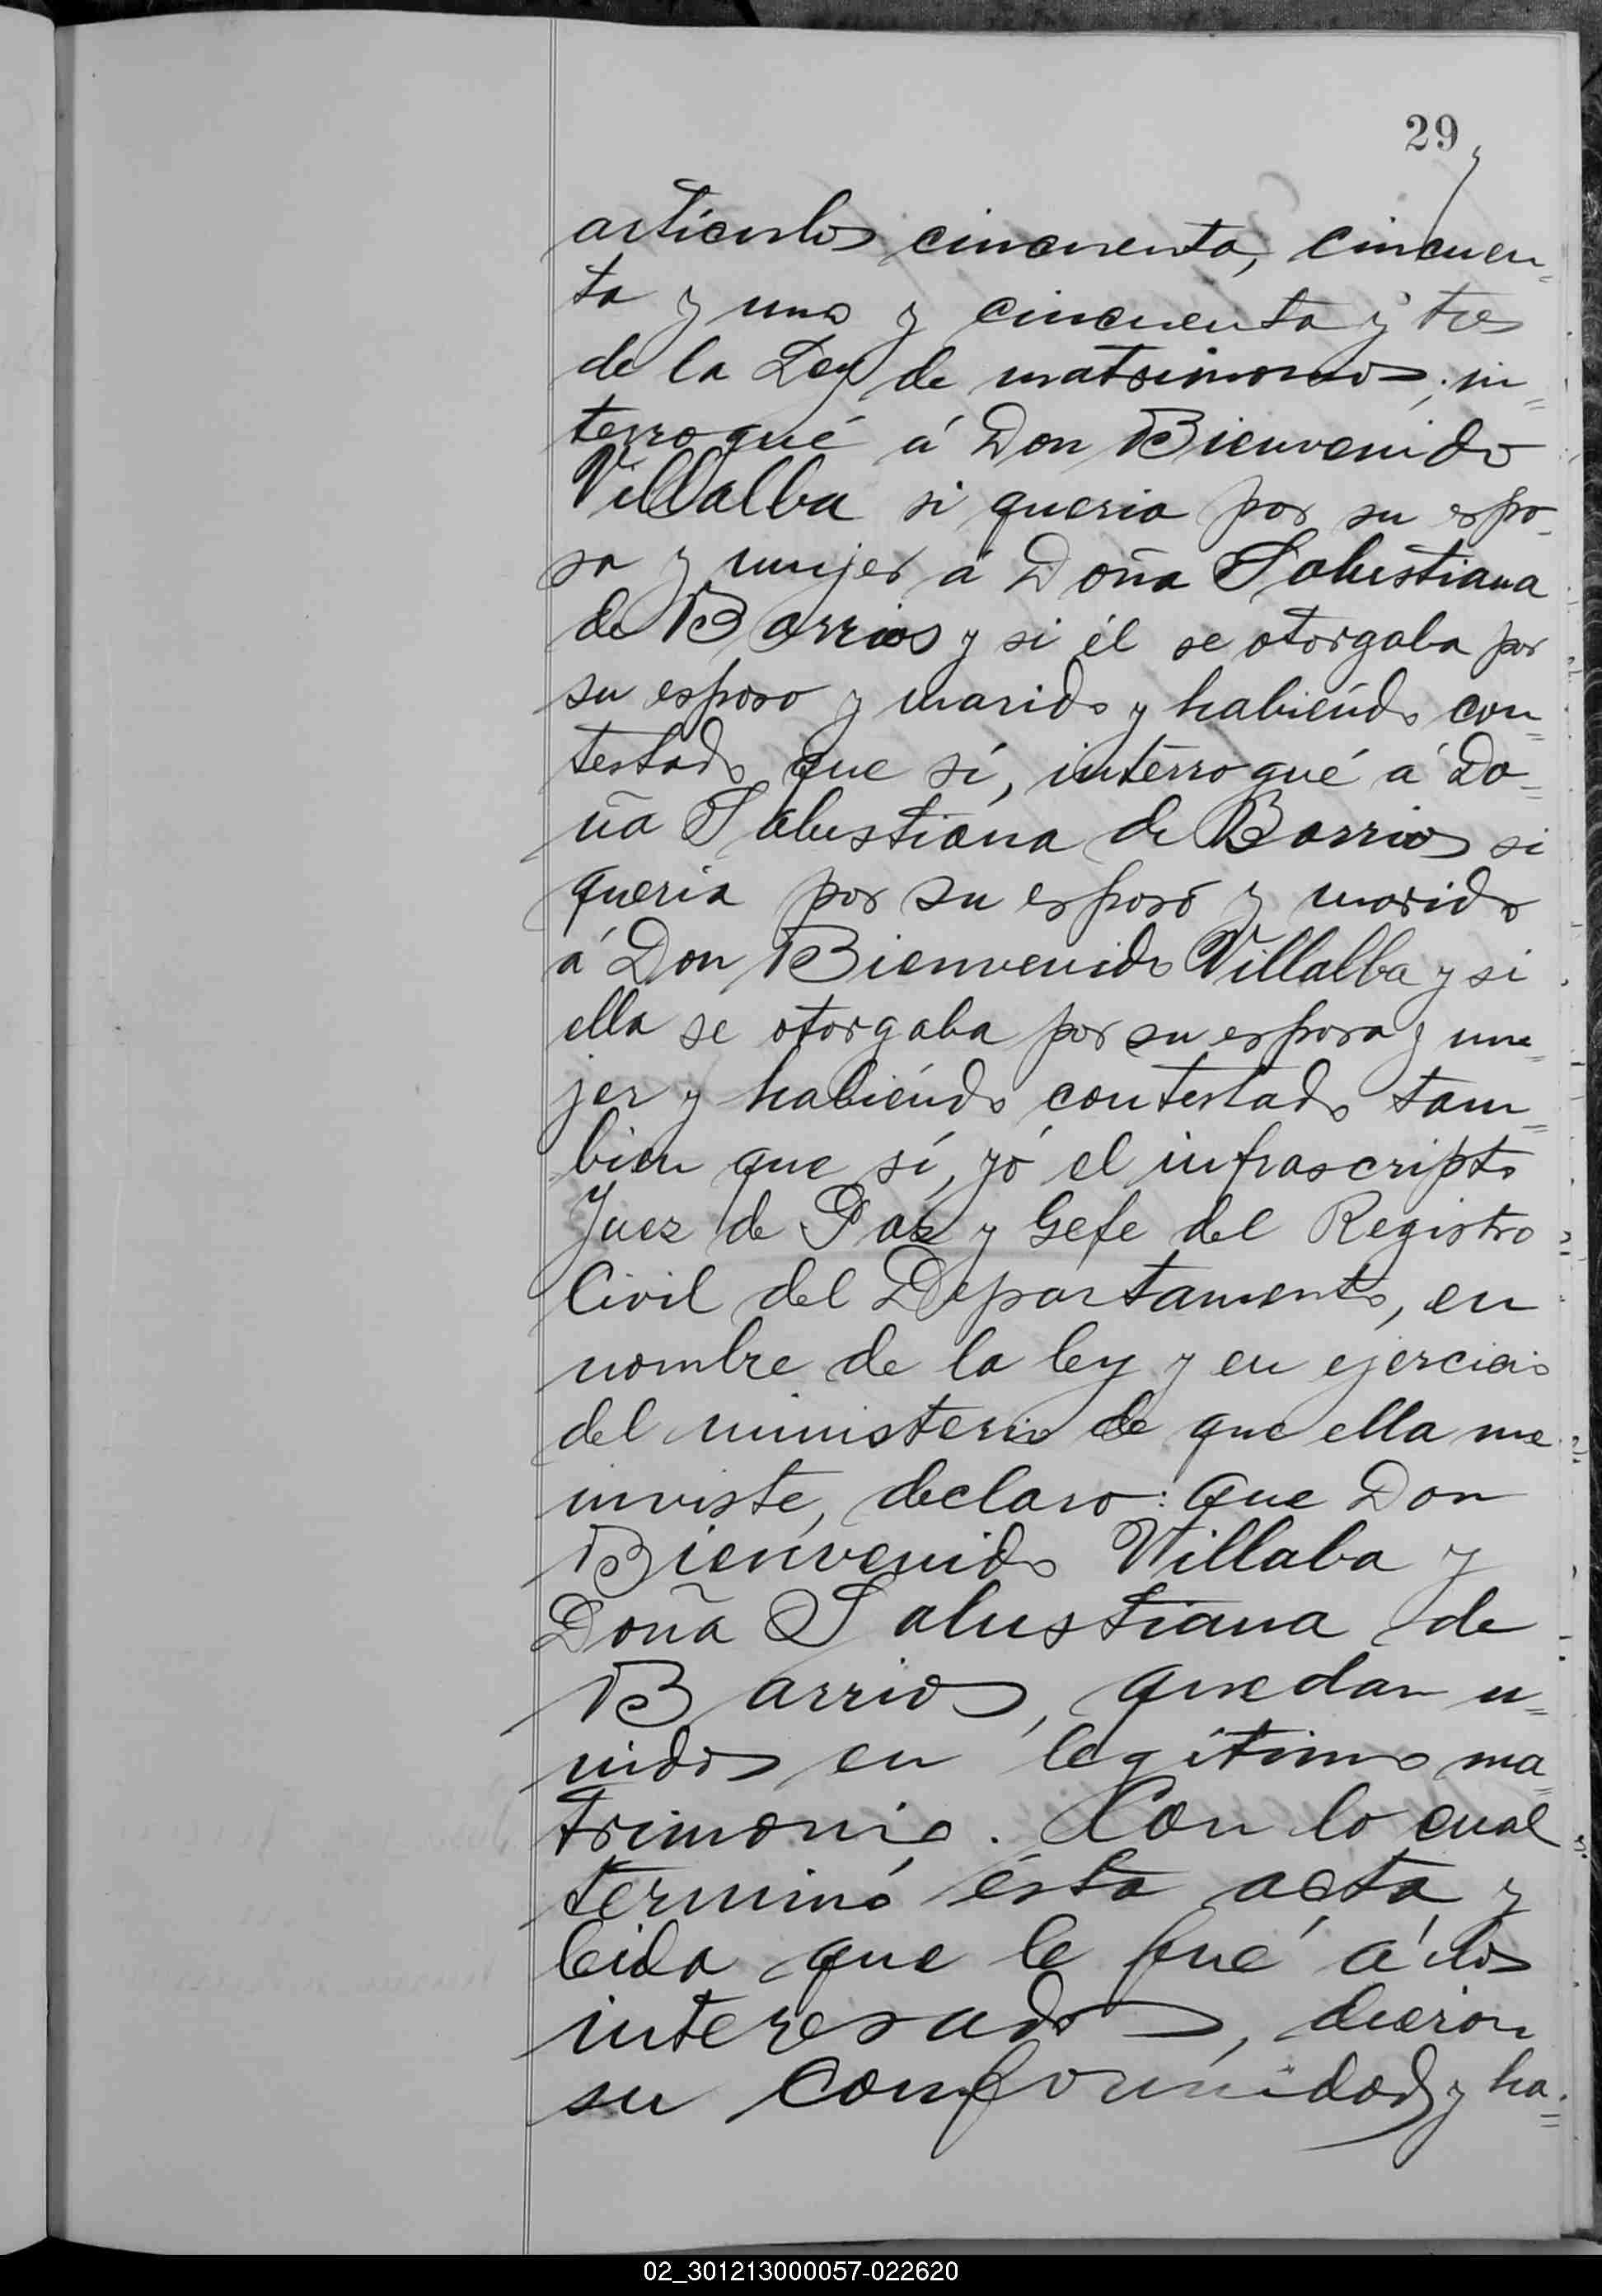 29
articulos cincuenta, cincuen=
ta y uno y cincuenta y tres
de la Ley de matrimonios; in=
terrogué á Don Bienvenido
Villalba si queria por su espo=
sa y mujer á Doña Salustiana
de Barrios y si él se otorgaba por
su esposo y marido y habiéndo con=
testado que sí, interrogué á Do=
ña Salustiana de Barrios si
queria por su esposo y marido
á Don Bienvenido Villalba y si
ella se otorgaba por su esposa y mu=
jer y habiéndo contestado tam=
bien que sí, yó el infrascripto
Juez de Paz y Gefe del Registro
Civil del Departamento, en
nombre de la ley y en ejercicio
del ministerio de que ella me
inviste, declaro: que Don
Bienvenido Villaba y
Doña Salustiana de
Barrios, quedan u=
nidos en legítimo ma=
trimonio. Con lo cual
terminó ésta acta y
leida que le fué á los
interesados, dieron
su conformidad y ha=
02_301213000057-022620